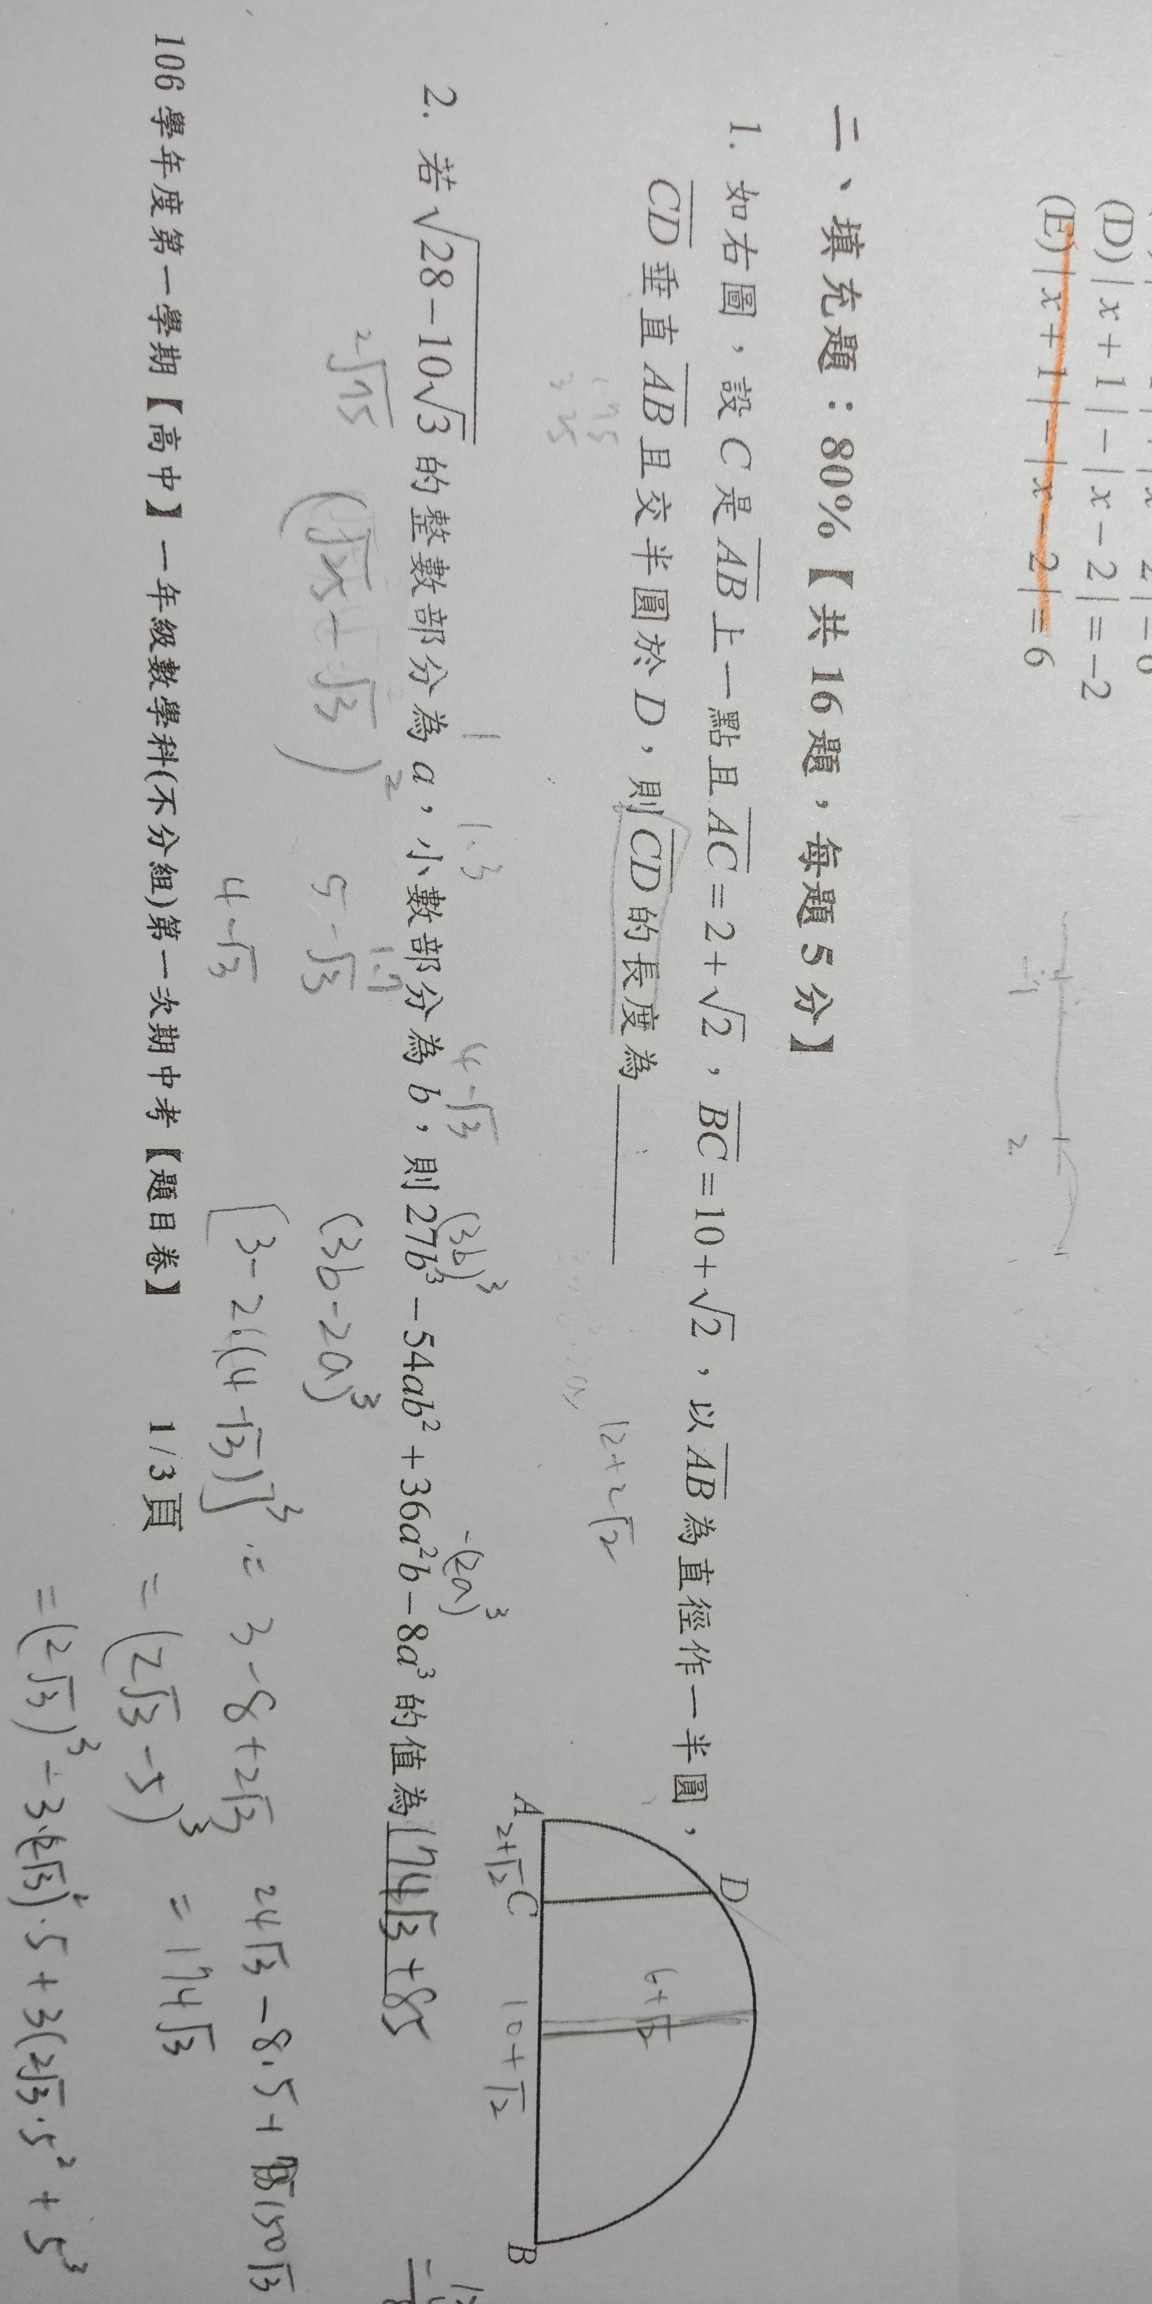 (D)|x+1|-|x-2|=-2
(E)|x+1|-|x-2|=6
-1
2
二、填充題：80%【共16題，每題5分】
1. 如右圖，設C是AB上一點且AC=2+√2，BC=10+√2，以AB為直徑作一半圓，
CD垂直AB且交半圓於D，則CD的長度為
12+2√2
D
6+√2
A 2+√2 C 10+√2 B
1 1.3 4-√3 (3b)³ -(2a)³
2. 若√28-10√3的整數部分為a，小數部分為b，則27b³-54ab²+36a²b-8a³的值為174√3+85
2√75 (√25-√3)² 5-√3 1.7
4-√3
(3b-2a)³
[3-2(4-√3)]³ = 3-8+2√3
= (2√3-5)³
= (2√3)³-3·(2√3)²·5+3(2√3·5²+5³
24√3-8.5+150√3
= 174√3
106學年度第一學期【高中】一年級數學科(不分組)第一次期中考【題目卷】 1/3頁